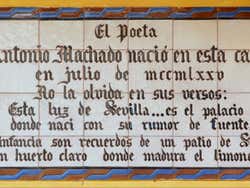 El Poeta
Antonio Machado nació en esta ca
en julio de mcmlxxv
No la olvida en sus versos:
Esta luz de Sevilla...es el palacio
donde nací con su rumor de fuente
infancia son recuerdos de un patio de S
n huerto claro donde madura el limon